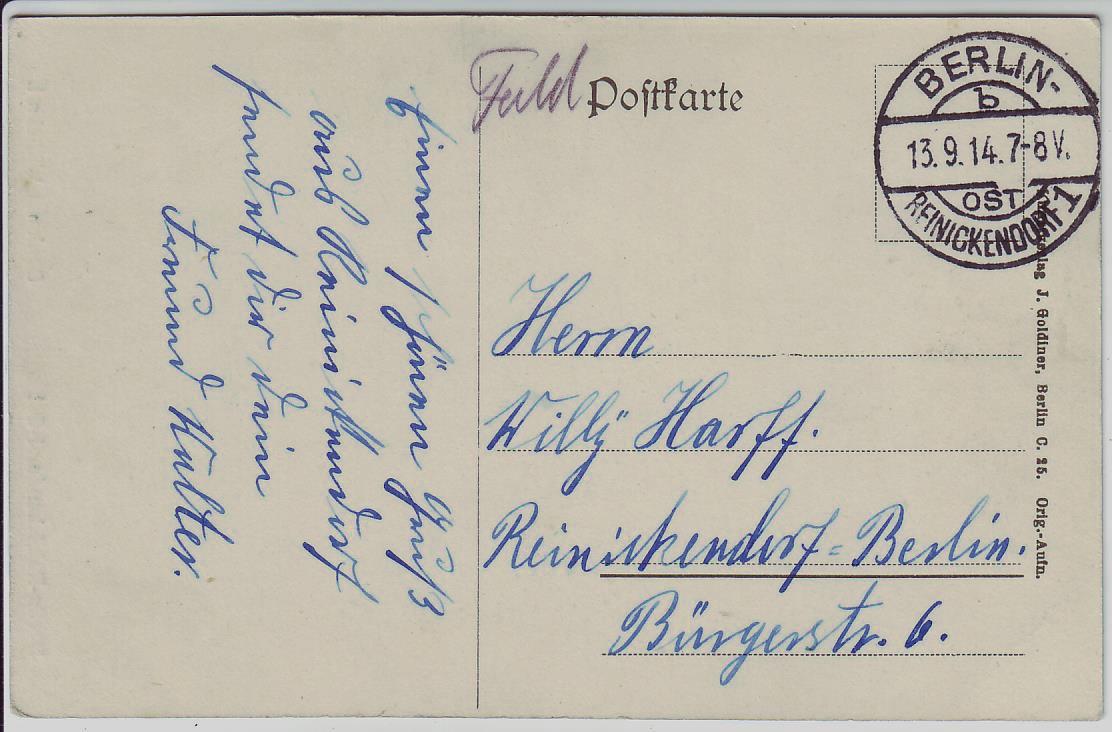 Feld Postkarte
BERLIN-
b
13.9.14.7-8V.
OST
REINICKENDORF 1
Einen schönen Gruß
aus Reinickendorf
sendet dir dein
Freund Walter.
Herrn
Willÿ Harff.
Reinickendorf=Berlin.
Bürgerstr. 6.
Verlag J. Goldiner, Berlin C. 25. Orig.-Aufn.